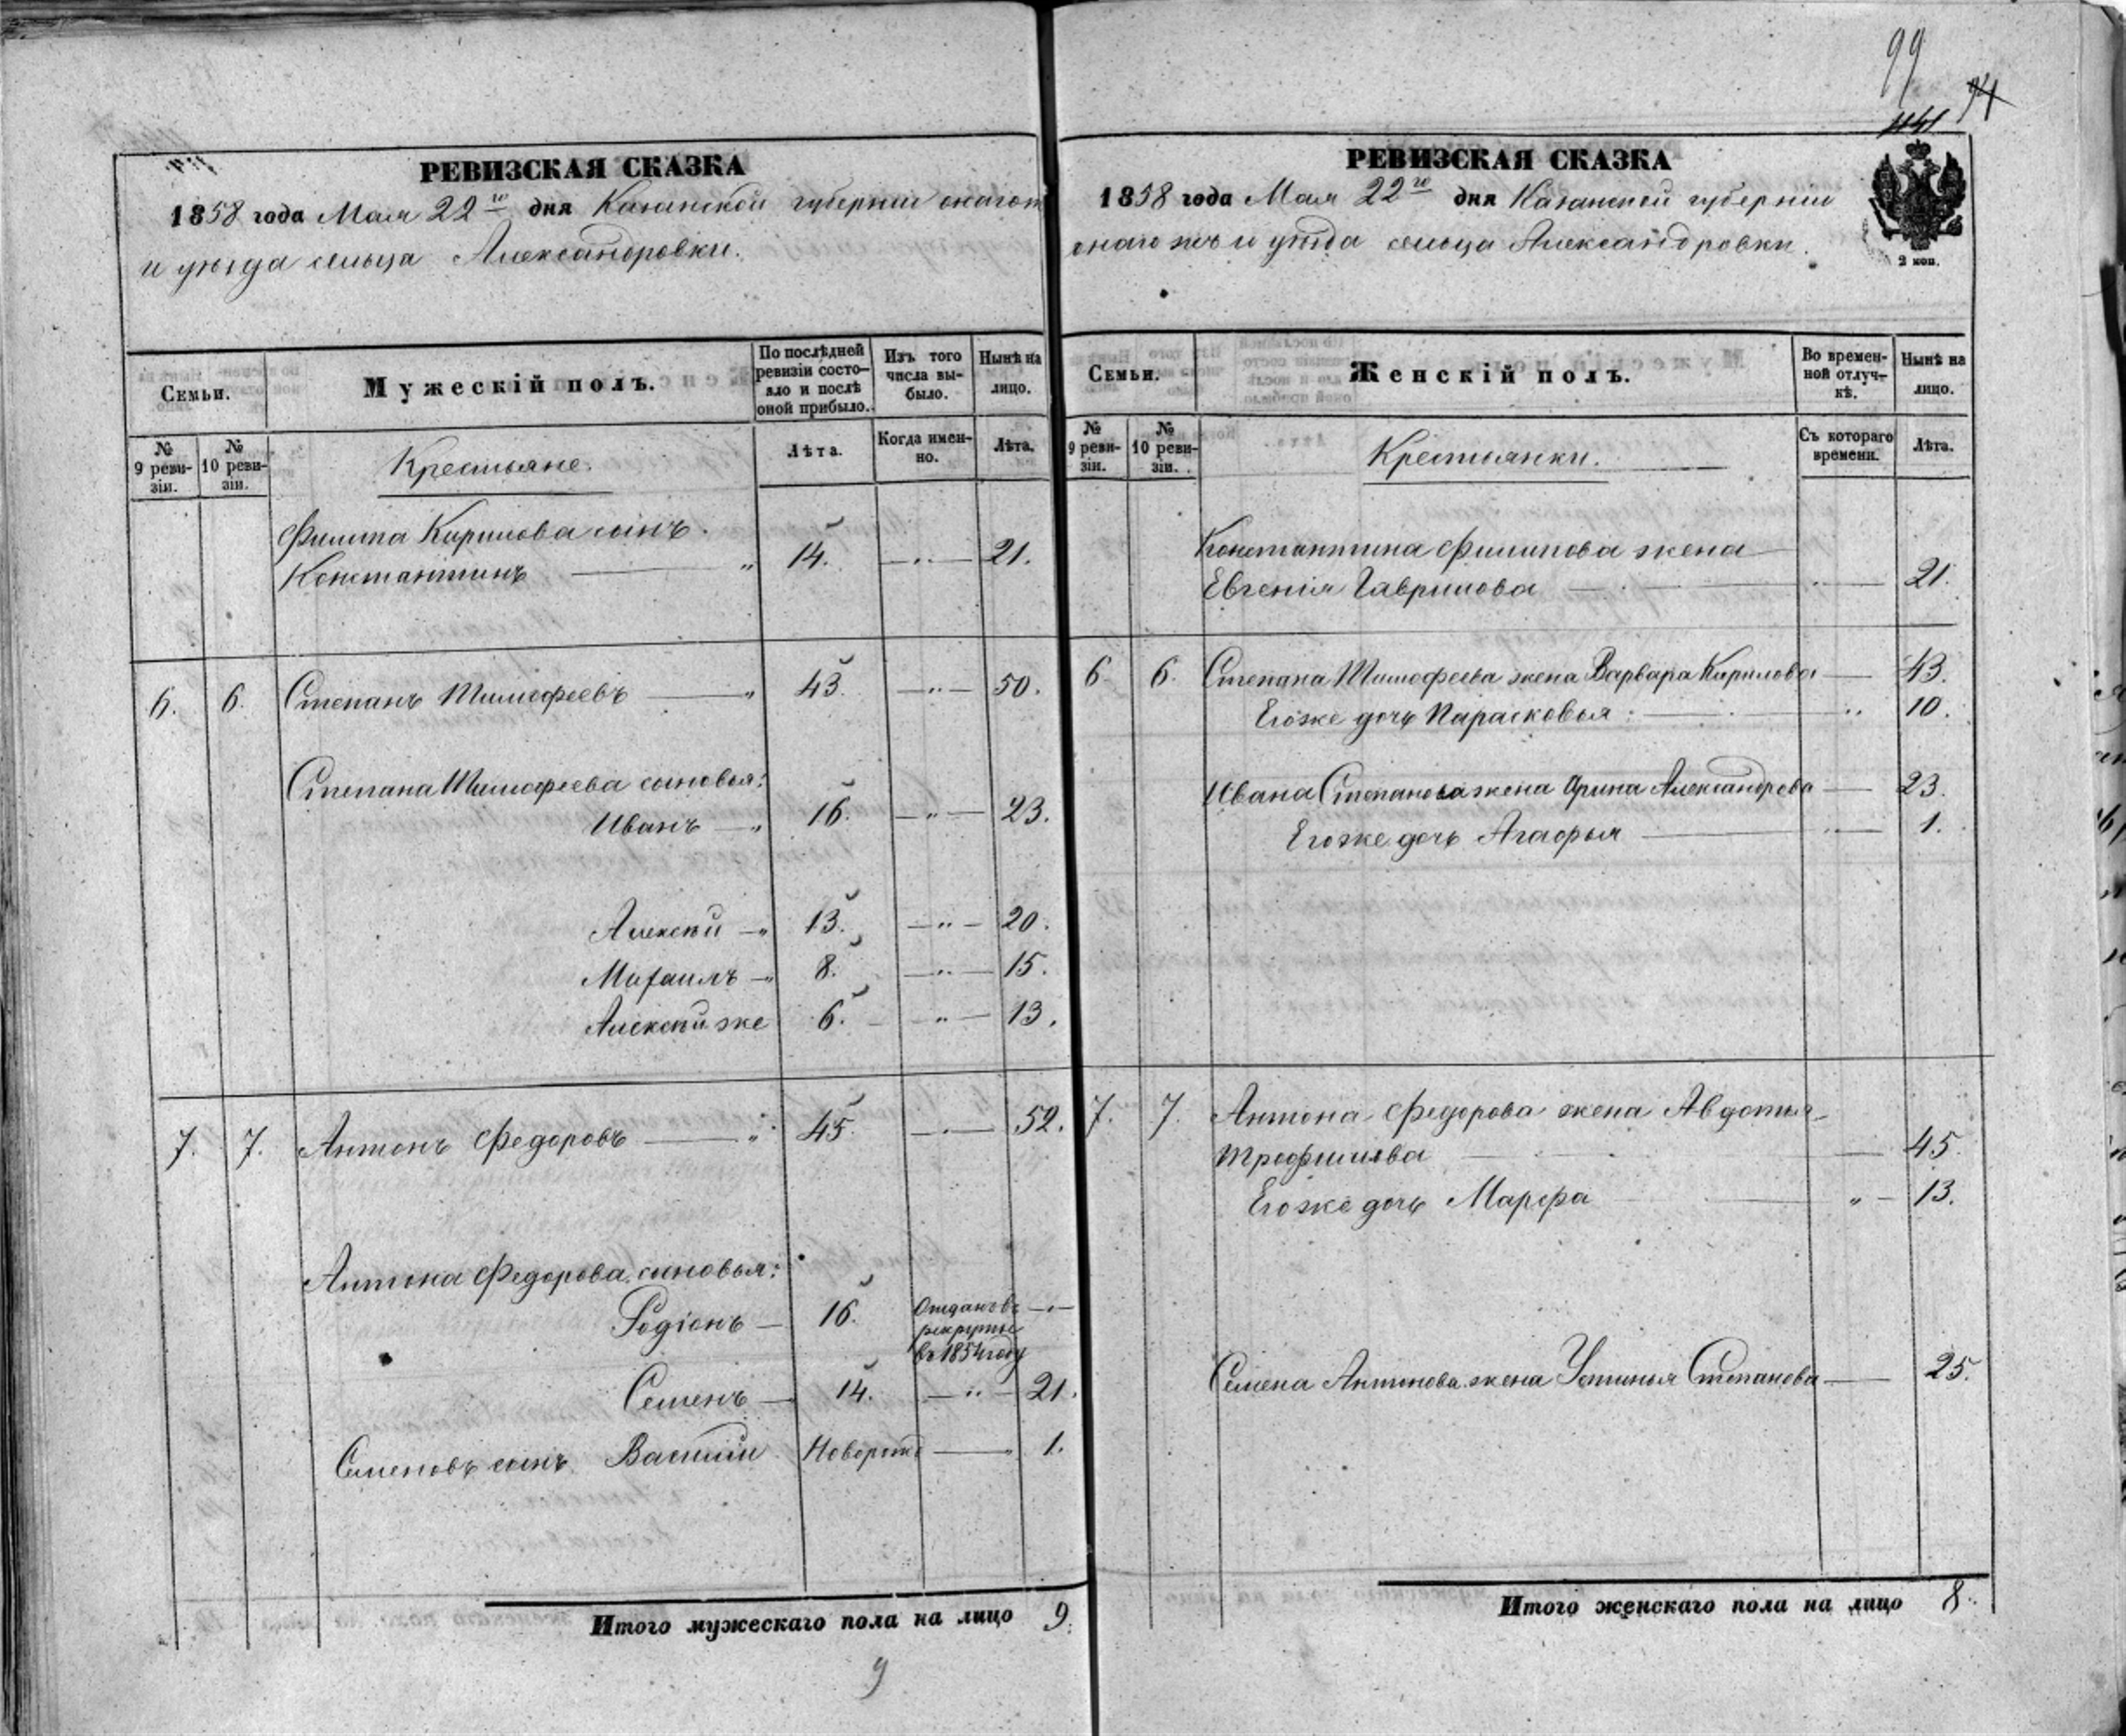 99
74
141
РЕВИЗСКАЯ СКАЗКА
1858 года Мая 22го дня Казанской губерніи онагожъ
и уѣзда сельца Александровки.
Семьи.
Мужескій полъ.
По послѣдней ревизіи состояло и послѣ оной прибыло.
Изъ того числа выбыло.
Нынѣ на лицо.
№ 9 ревизіи.
№ 10 ревизіи.
Крестьяне.
Лѣта.
Когда именно.
Лѣта.
Филипа Кирилова сынъ
Константинъ — " 14. — " — 21.
6. 6. Степанъ Тимофеевъ — " 43. — " — 50.
Степана Тимофеева сыновья:
Иванъ — " 16. — " — 23.
Алексѣй — " 13. — " — 20.
Михаилъ — " 8. — " — 15.
Алексѣй же 6. — " — 13.
7. 7. Антонъ Федоровъ — " 45. — " — 52.
Антона Федорова сыновья:
Родіонъ — 16. Отданъ въ — " —
рекруты
въ 1854 году
Семенъ — 14. — " — 21.
Семеновъ сынъ Василій Новорожд — " 1.
Итого мужескаго пола на лицо 9.
9
РЕВИЗСКАЯ СКАЗКА
1858 года Мая 22го дня Казанской губерніи
онагожъ и уѣзда сельца Александровки.
2 коп.
Семьи.
Женскій полъ.
Во временной отлучкѣ.
Нынѣ на лицо.
№ 9 ревизіи.
№ 10 ревизіи.
Крестьянки.
Съ котораго времени.
Лѣта.
Константина Филипова жена
Евгенія Гаврилова — " — 21.
6. 6. Степана Тимофеева жена Варвара Кирилова — 43.
Его же дочь Парасковья: — " 10.
Ивана Степанова жена Ирина Александрова — 23.
Его же дочь Агафья — " — 1.
7. 7. Антона Федорова жена Авдотья
Трофимова — 45.
Его же дочь Марфа — " — 13.
Семена Антонова жена Устинья Степанова — 25.
Итого женскаго пола на лицо 8.